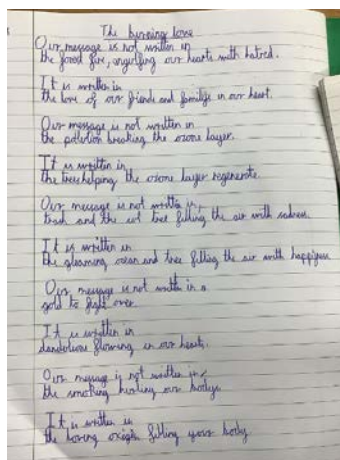 The burning love
Our message is not written in
the forest fire, angulfing our hearts with hatred.
It is written in
the love of our friends and familys in our heart.
Our message is not written in
the pollution breaking the ozone layer.
It is written in
the trees helping the ozone layer regenerate.
Our message is not written in,
trash and the cut tree filling the air with sadness
It is written in
the gleaming ocean and tree filling the air with happiness
Our message is not written in a
gold to fight over.
It is written in
dandelions flowing in our hearts.
Our message is not written in,
the smoking hurting our bodys.
It is written in
the loving filling your body